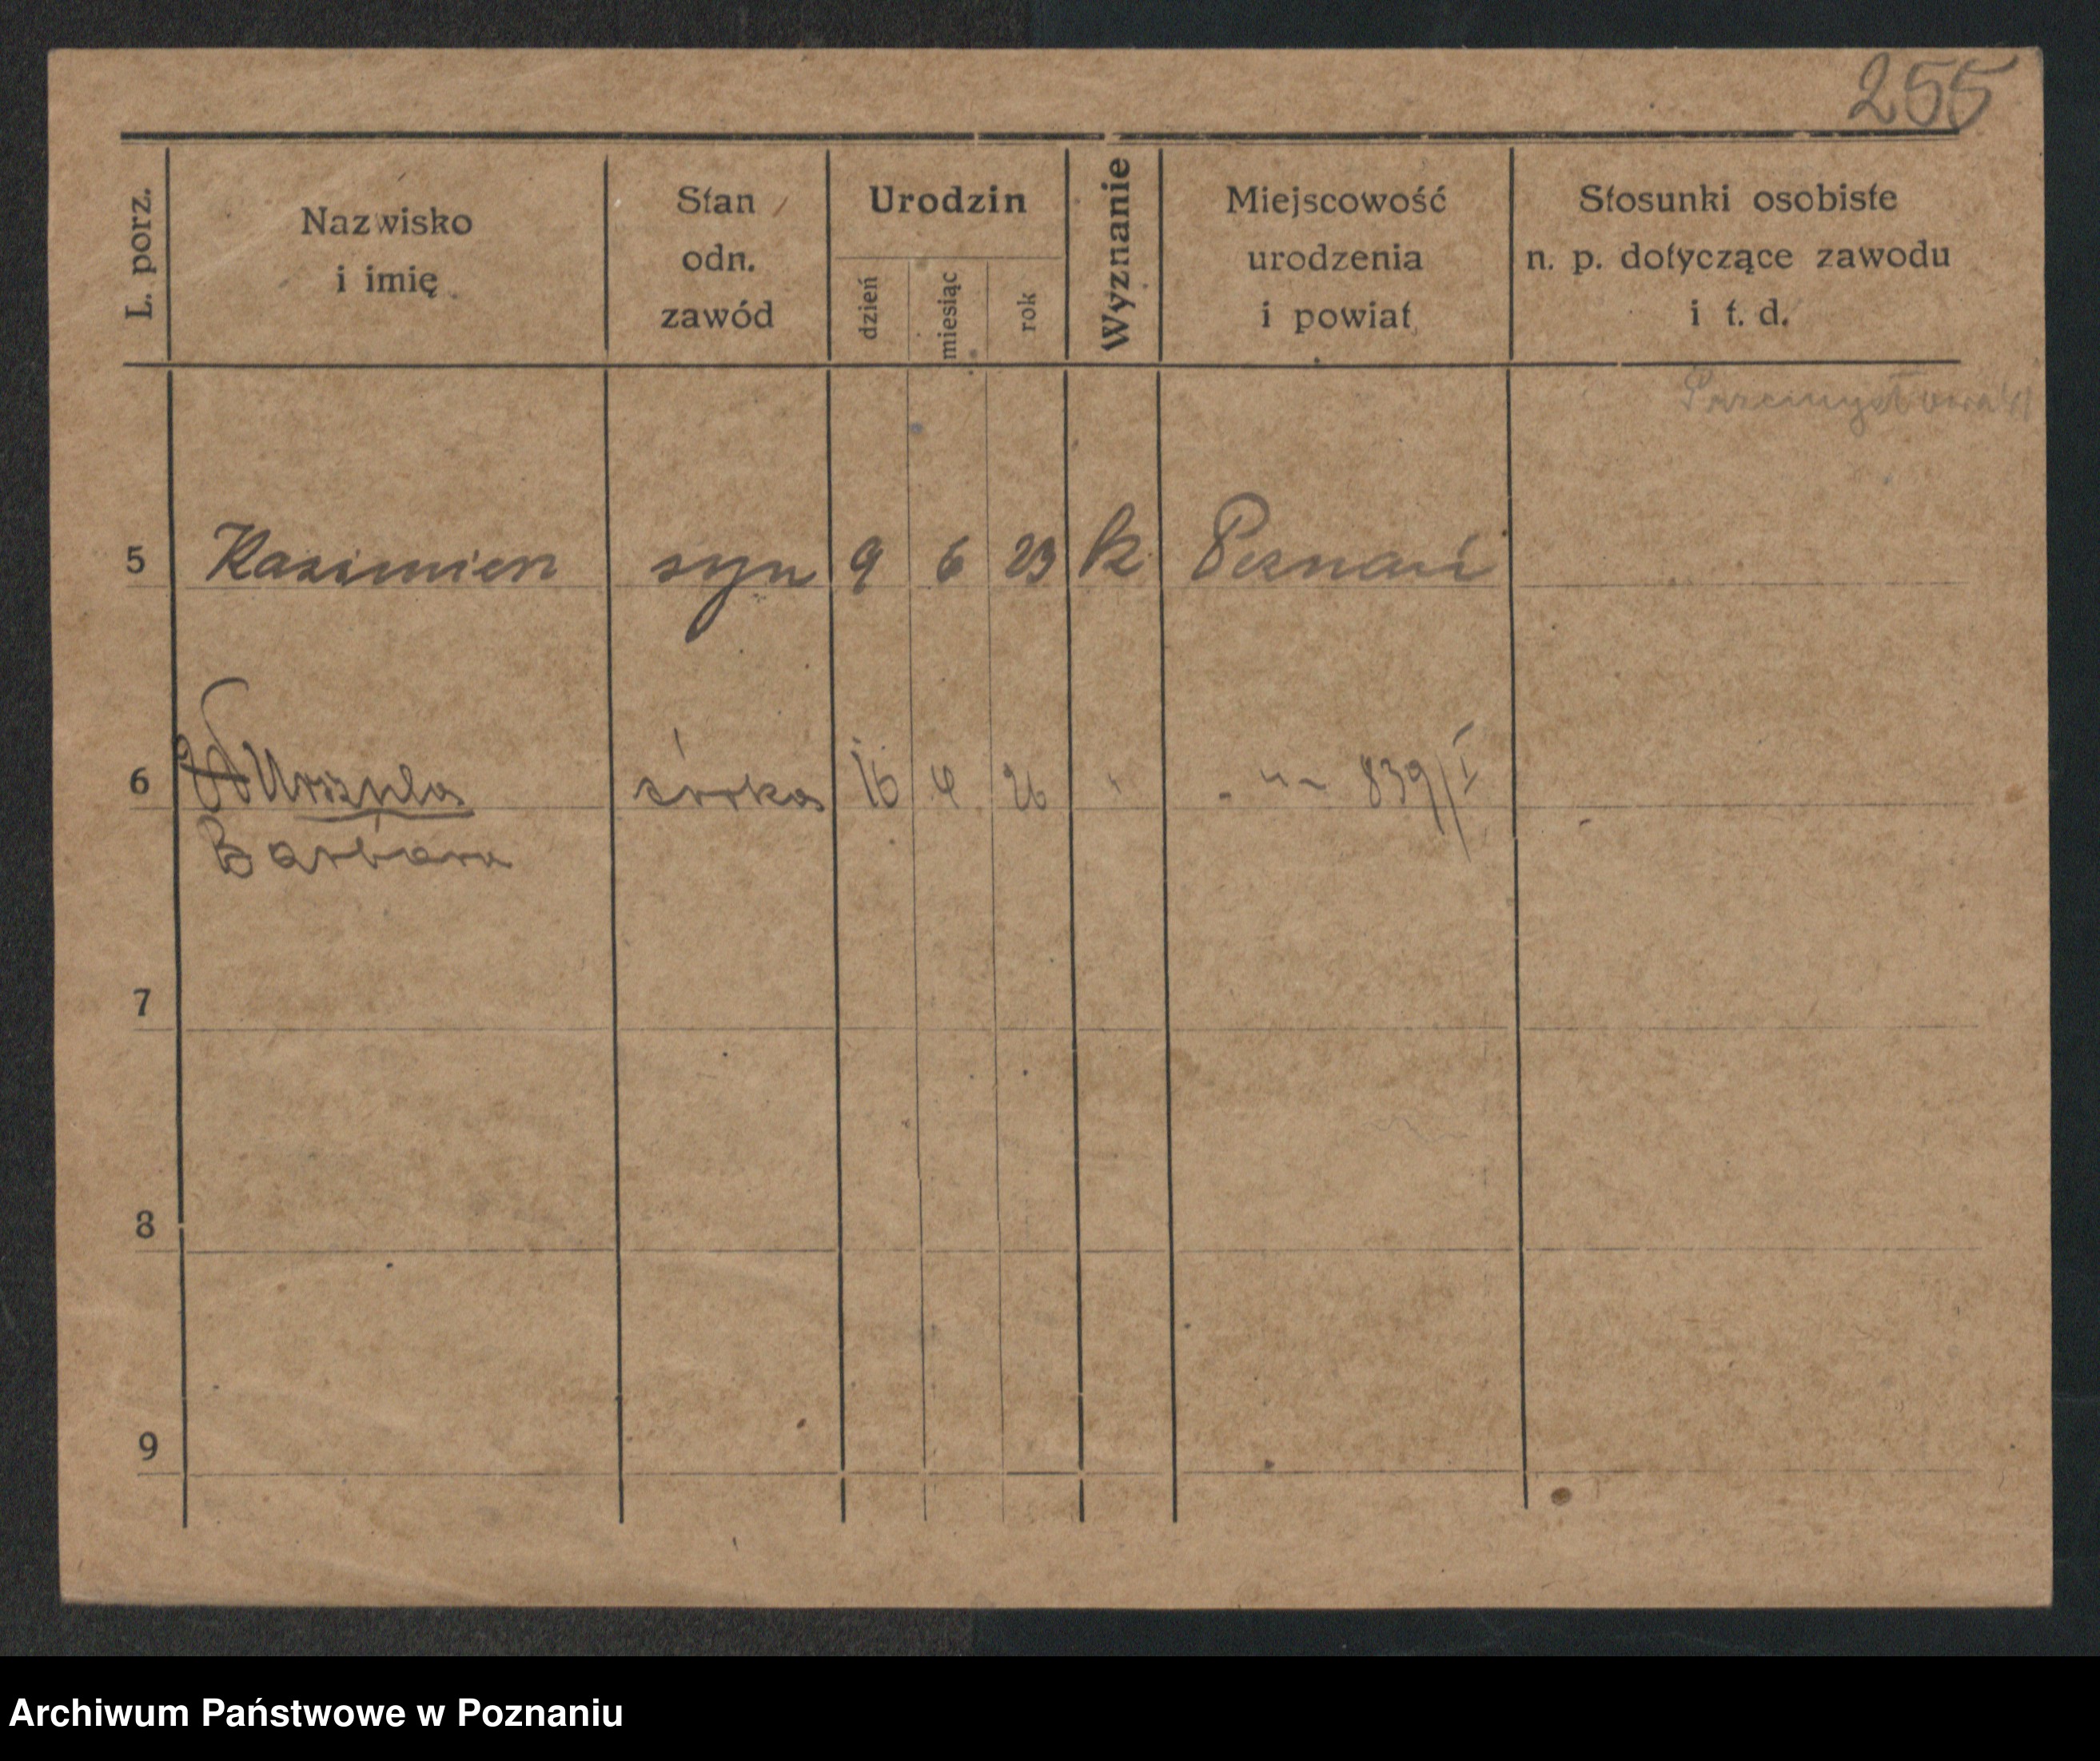 255
L. porz.
Nazwisko
i imię
Stan
odn.
zawód
Urodzin
dzień
miesiąc
rok
Wyznanie
Miejscowość
urodzenia
i powiat
Stosunki osobiste
n. p. dotyczące zawodu
i t. d.
5 Kazimierz syn 9 6 23 k Poznań
6 Urszula córka 16 4 26 " - " - 839/I
Barbara
7
8
9
Archiwum Państwowe w Poznaniu